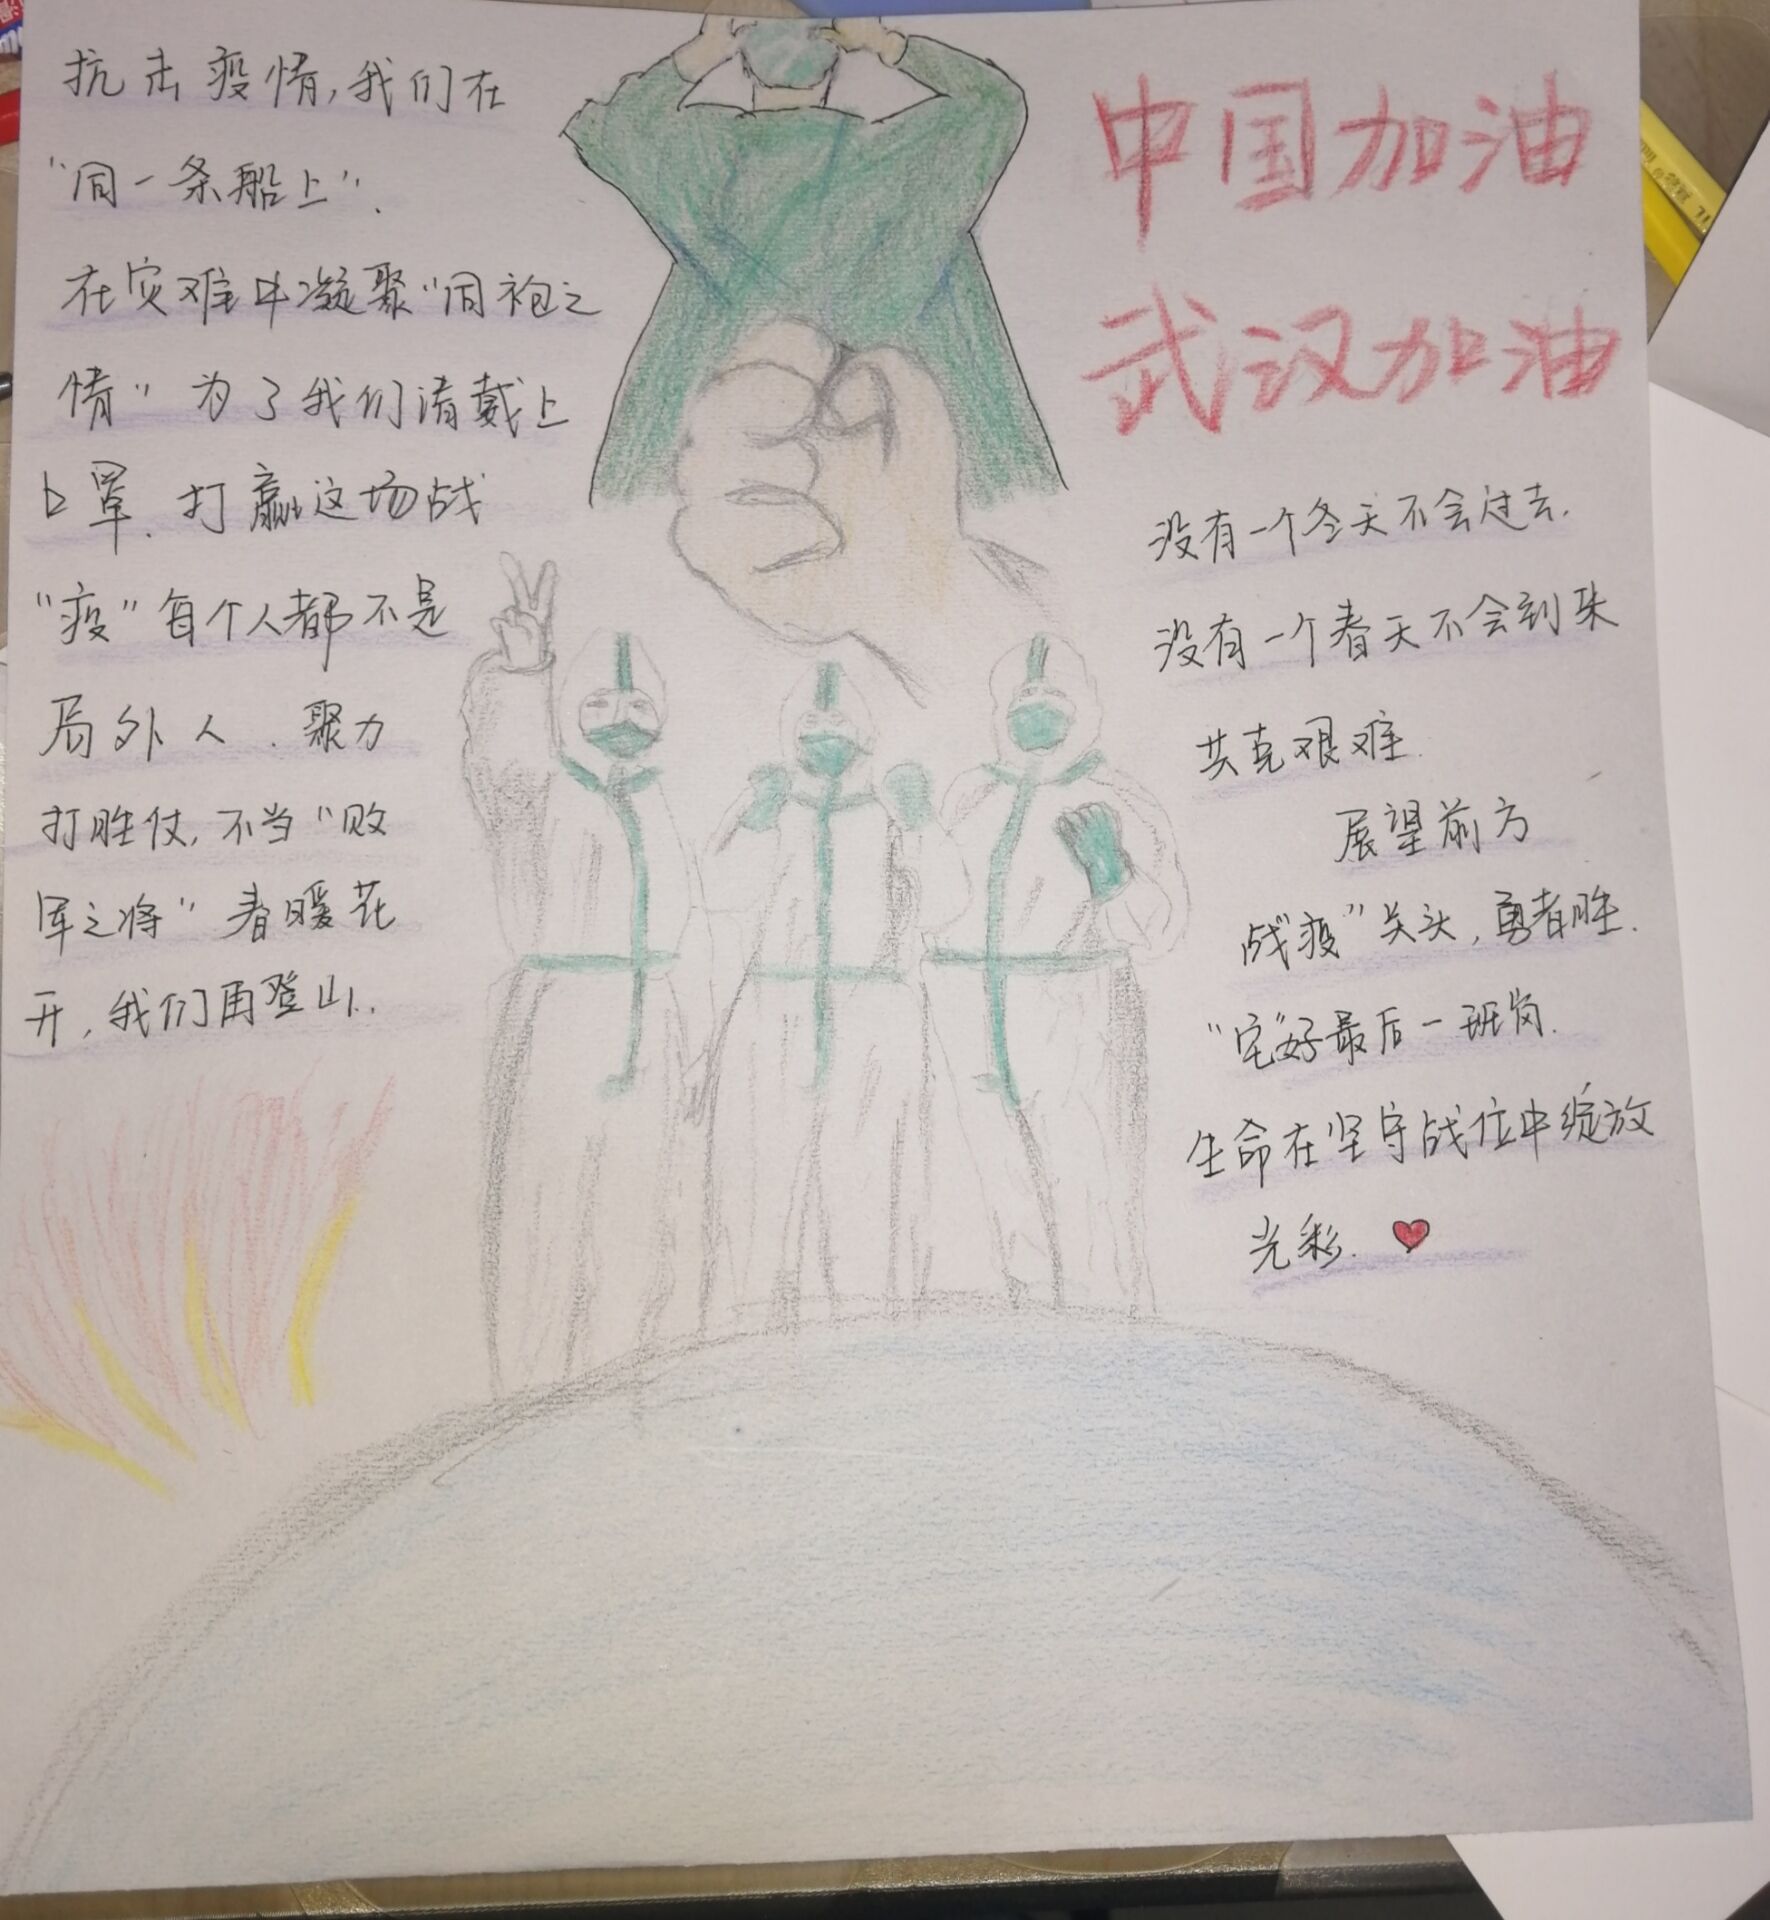 抗击疫情,我们在
"同一条船上".
在灾难中凝聚"同袍之
情"为了我们请戴上
口罩.打赢这场战
"疫"每个人都不是
局外人.聚力
打胜仗,不当"败
军之将"春暖花
开,我们再登山.
中国加油
武汉加油
没有一个冬天不会过去.
没有一个春天不会到来
共克艰难.
展望前方
战"疫"关头,勇者胜.
"宅"好最后一班岗.
生命在坚守战位中绽放
光彩.